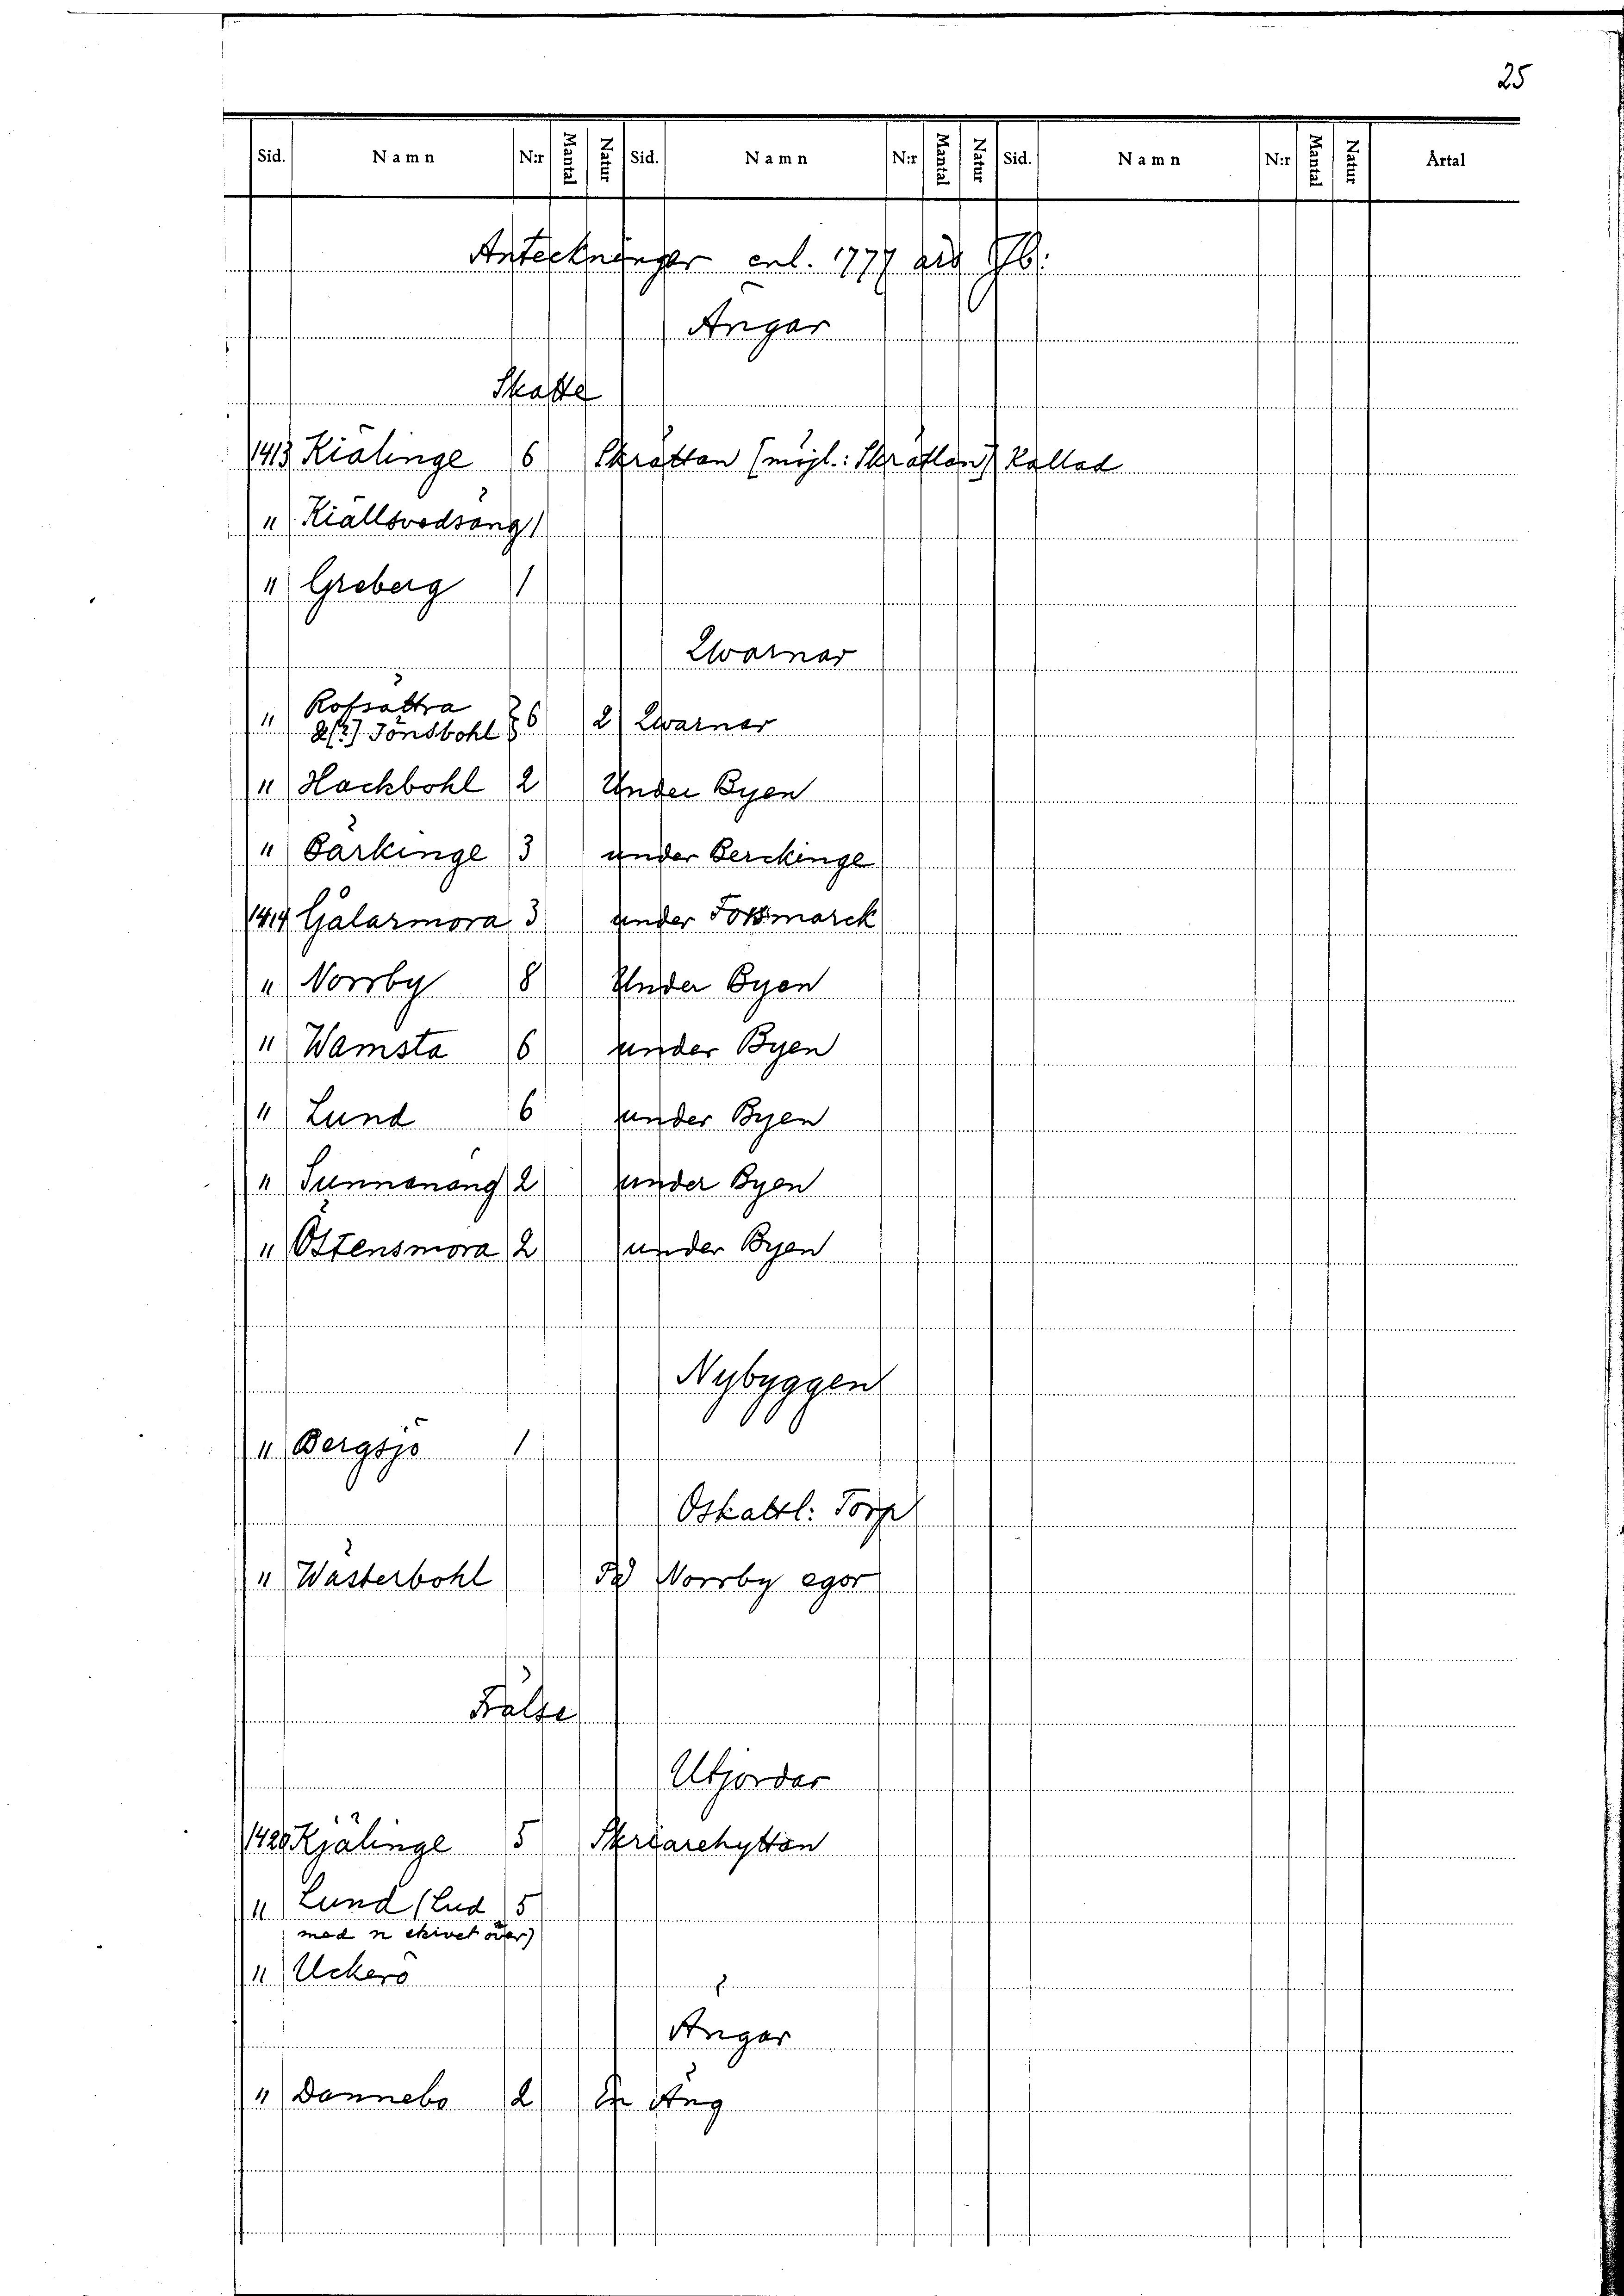 25
Sid. Namn N:r Mantal Natur Sid. Namn N:r Mantal Natur Sid. Namn N:r Mantal Natur Årtal
Anteckningar enl. 1777 års Jb:
Ängar
Skatte
1413 Kiälinge 6 Skråttan [möjl.: Skråtlan] Kallad
" Kiällsvedsäng 1
" Greberg 1
Qwarnar
" Rofsättra
&[?] Jönsbohl } 6 2 Qwarnar
" Hackbohl 2 Under Byen
" Bärkinge 3 under Berckinge
1414 Gålarmora 3 under Forsmarck
" Norrby 8 Under Byen
" Wamsta 6 under Byen
" Lund 6 under Byen
" Sunnanäng 2 under Byen
" Östensmora 2 under Byen
Nybyggen
" Bergsjö 1
Oskattl: Torp
" Wästerbohl På Norrby egor
Frälse
Utjordar
1420 Kjälinge 5 Skriarehyttan
" Lund (Lud 5
med n skrivet över)
" Uckerö
Ängar
" Dannebo 2 En Äng